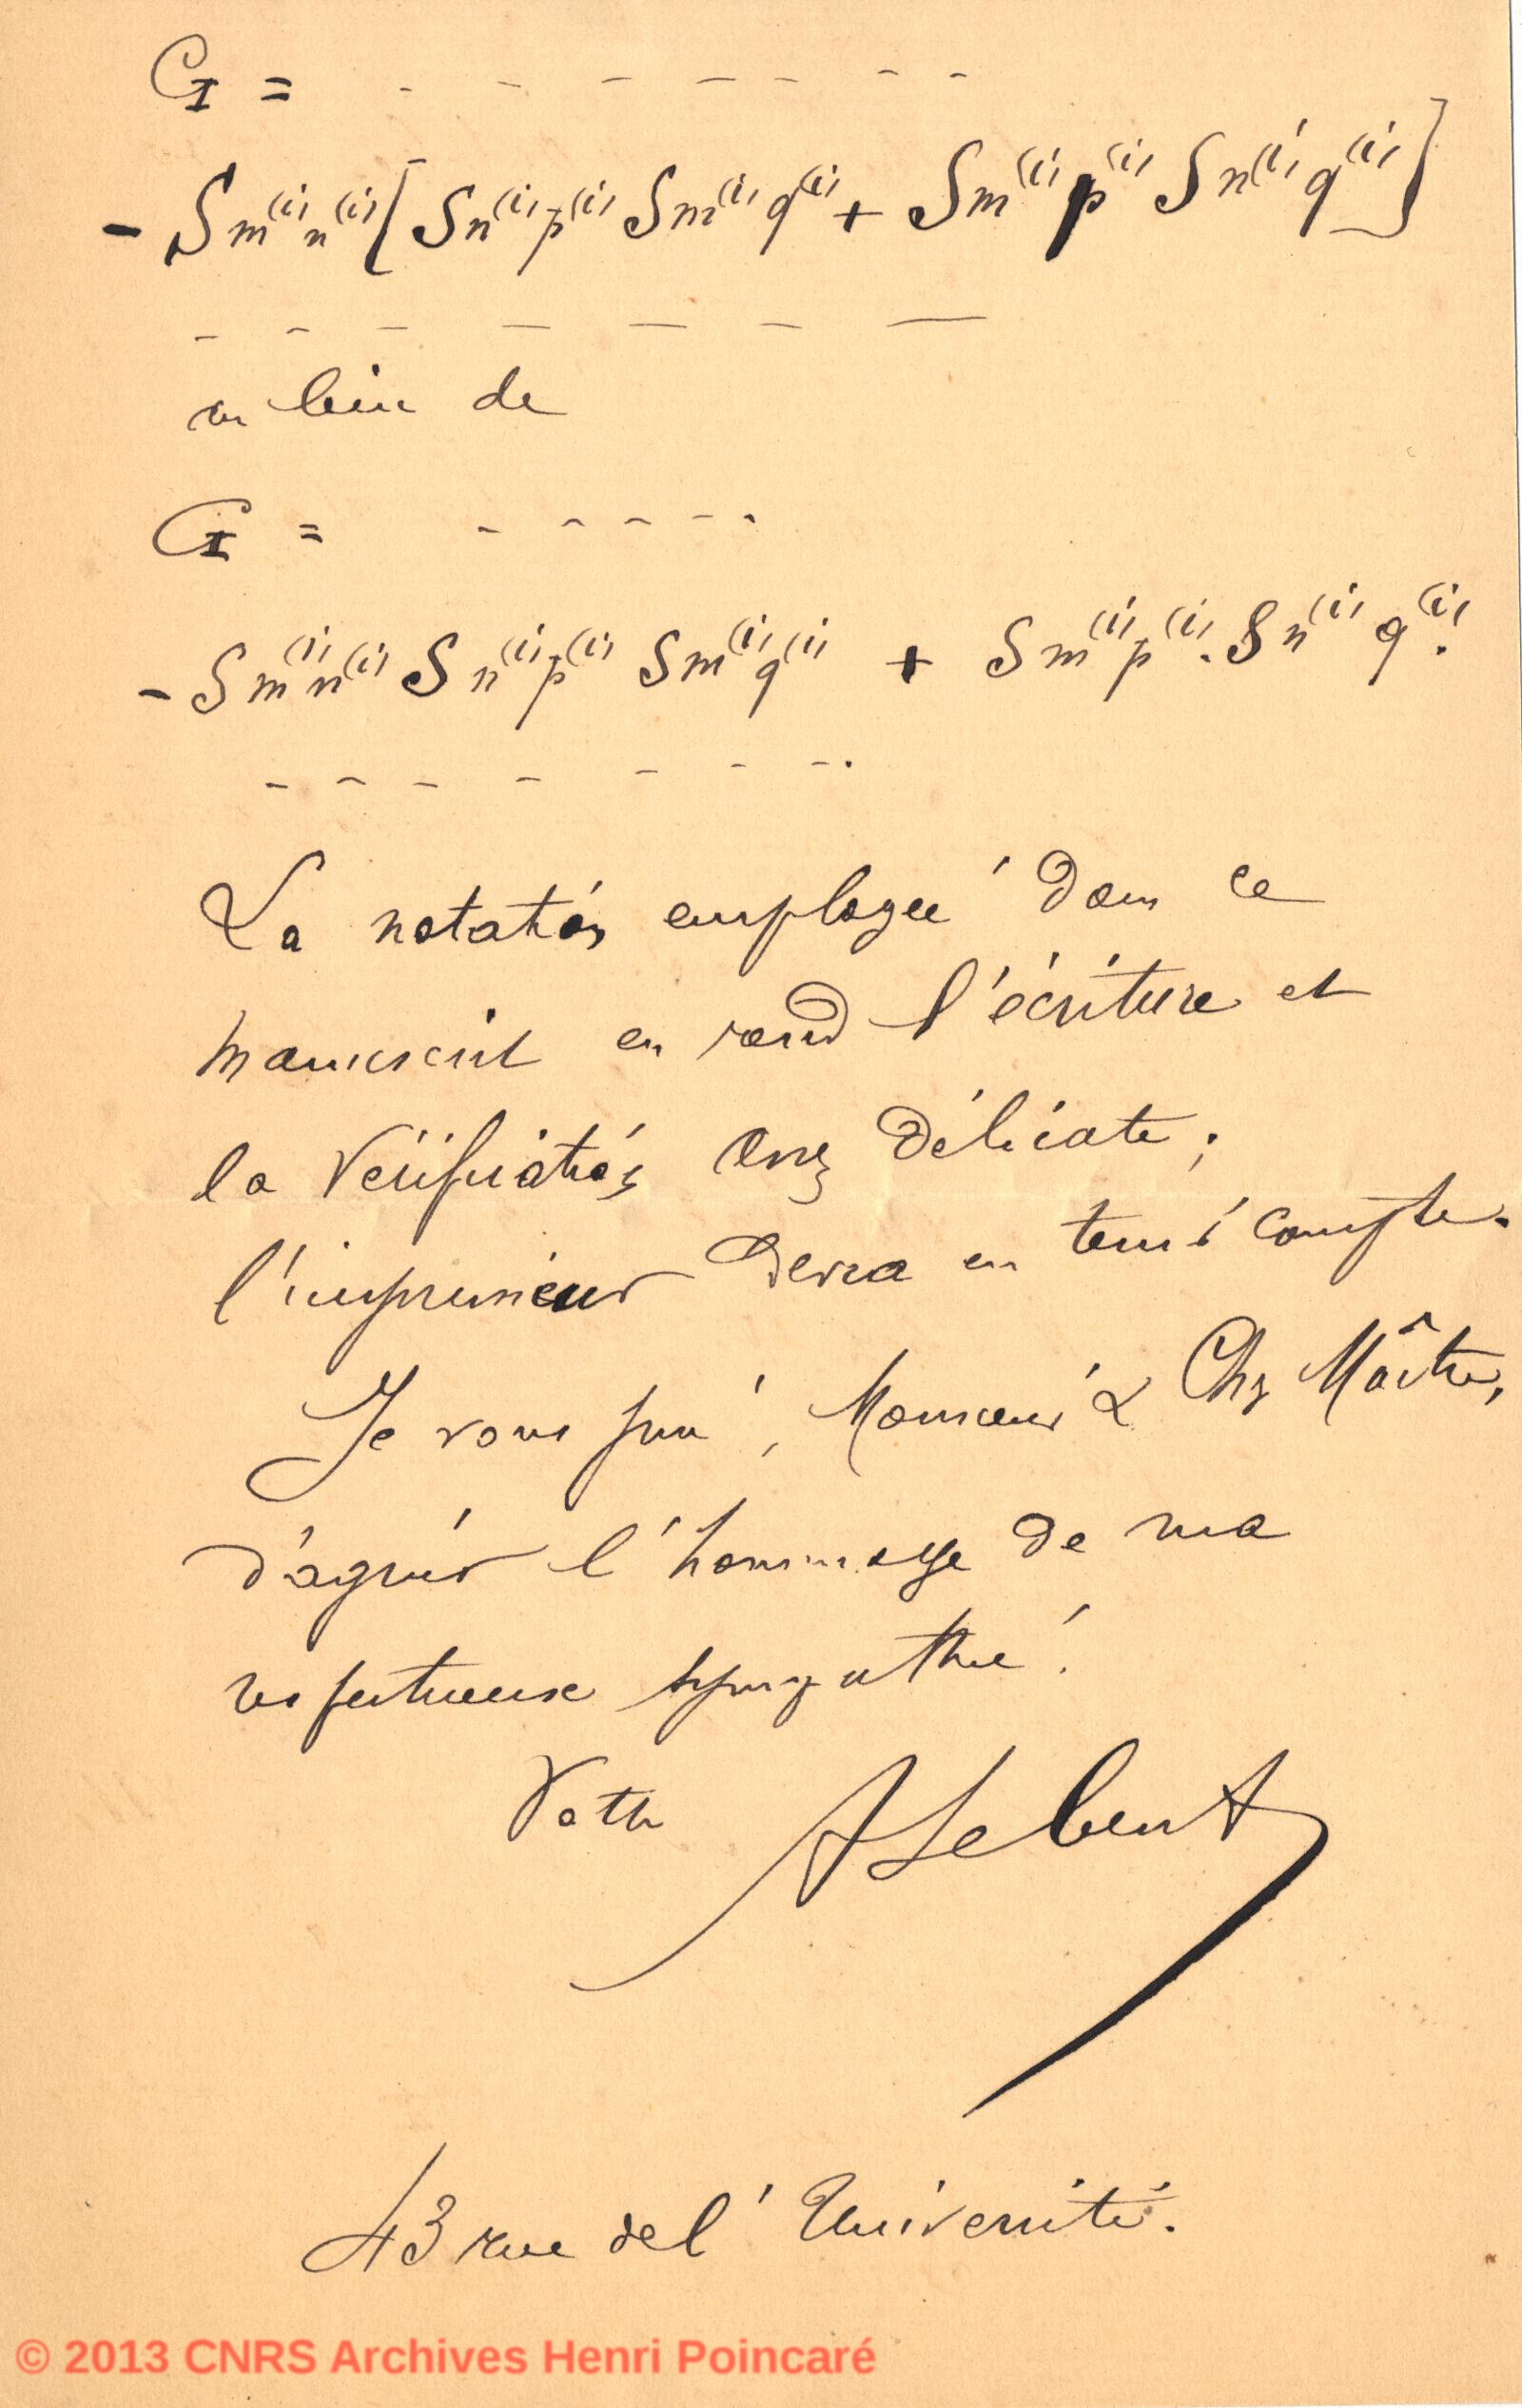 G_I = - - - - - - -
- S m^(i) n^(i) [ S n^(i) p^(i) S m^(i) q^(i) + S m^(i) p^(i) S n^(i) q^(i) ]
- - - - - - -
au lieu de
G_I = - - - - -
- S m^(i) n^(i) S n^(i) p^(i) S m^(i) q^(i) + S m^(i) p^(i) . S n^(i) q^(i) .
- - - - - - - .
La notation employée dans ce
manuscrit en rend l'écriture et
la vérification assez délicate ;
l'imprimeur devra en tenir compte.
Je vous prie, Monsieur & Cher Maître,
d'agréer l'hommage de ma
respectueuse sympathie.
Votre ALebeuf
43 rue de l'Université.
© 2013 CNRS Archives Henri Poincaré